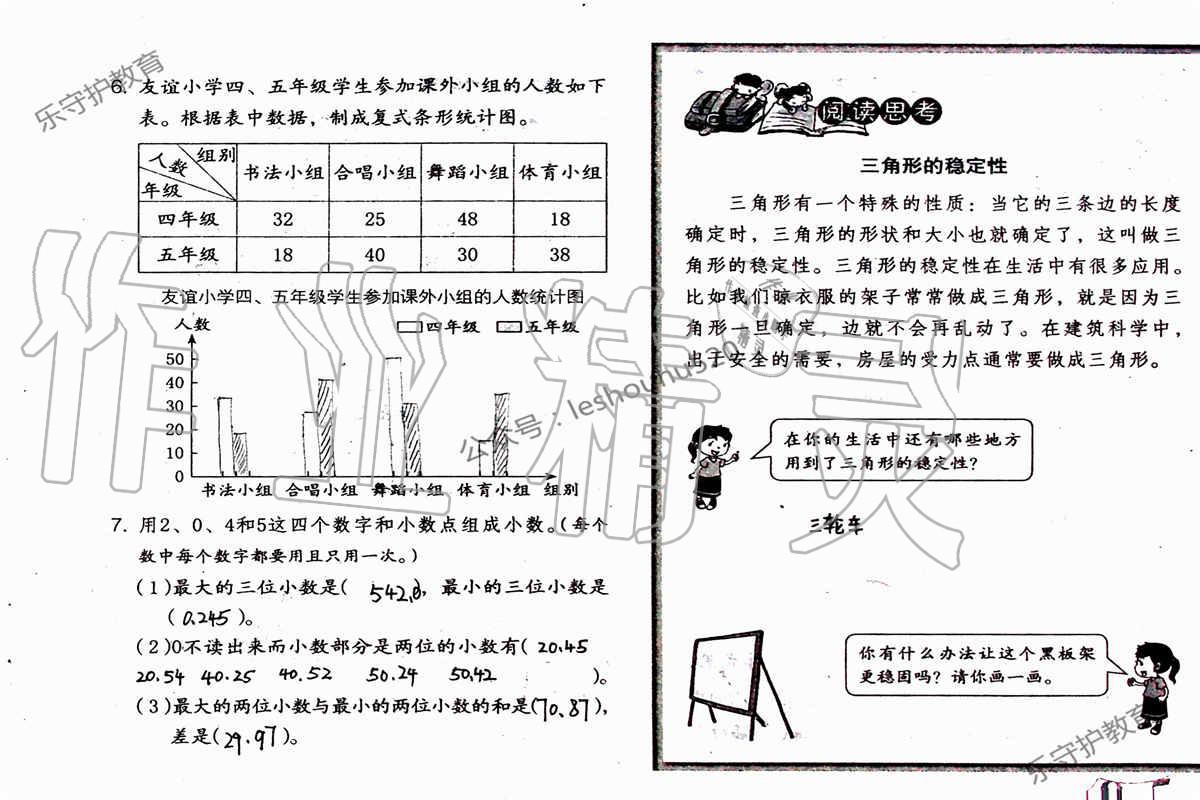 乐守护教育
6. 友谊小学四、五年级学生参加课外小组的人数如下
表。根据表中数据，制成复式条形统计图。
人数 组别 年级 书法小组 合唱小组 舞蹈小组 体育小组
四年级 32 25 48 18
五年级 18 40 30 38
友谊小学四、五年级学生参加课外小组的人数统计图
人数 四年级 五年级
50
40
30
20
10
0
书法小组 合唱小组 舞蹈小组 体育小组 组别
7. 用2、0、4和5这四个数字和小数点组成小数。（每个
数中每个数字都要用且只用一次。）
（1）最大的三位小数是（ 542.0），最小的三位小数是
（0.245）。
（2）0不读出来而小数部分是两位的小数有（20.45
20.54 40.25 40.52 50.24 50.42 ）。
（3）最大的两位小数与最小的两位小数的和是（70.87），
差是（29.97）。
阅读思考
三角形的稳定性
三角形有一个特殊的性质：当它的三条边的长度
确定时，三角形的形状和大小也就确定了，这叫做三
角形的稳定性。三角形的稳定性在生活中有很多应用。
比如我们晾衣服的架子常常做成三角形，就是因为三
角形一旦确定，边就不会再乱动了。在建筑科学中，
出于安全的需要，房屋的受力点通常要做成三角形。
在你的生活中还有哪些地方
用到了三角形的稳定性？
三轮车
你有什么办法让这个黑板架
更稳固吗？请你画一画。
作业精灵
公众号：leshouhu530
乐守护教育